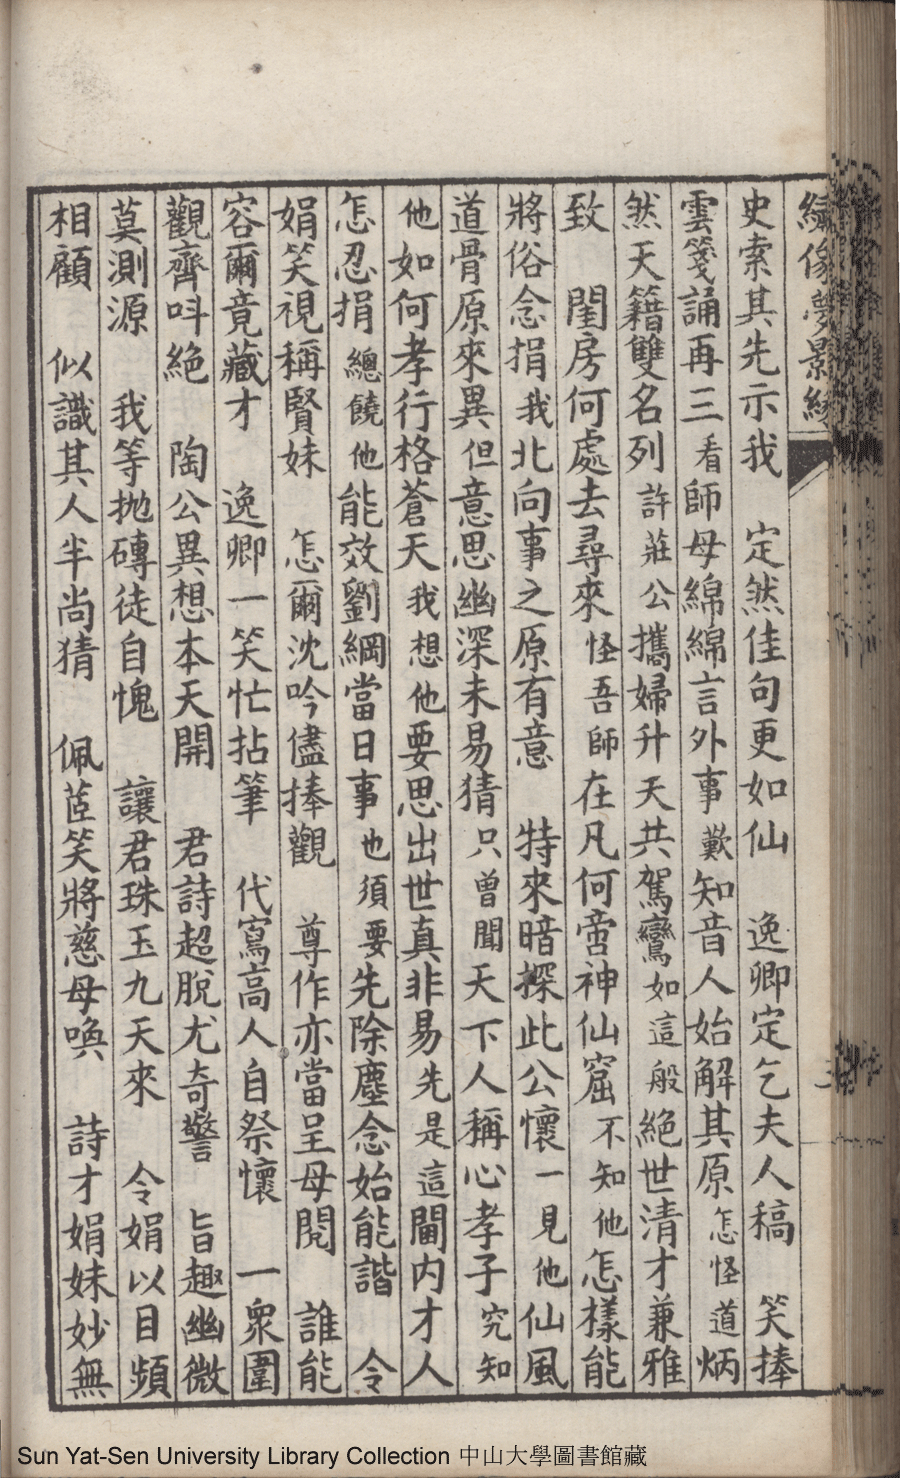 繡像夢影緣
史索其先示我　定然佳句更如仙　逸卿定乞夫人稿　笑捧
雲箋誦再三看師母綿綿言外事歎知音人始解其原怎怪道炳
然天籟雙名列許莊公攜婦升天共駕鸞如這般絕世清才兼雅
致　閨房何處去尋來怪吾師在凡何啻神仙窟不知他怎樣能
將俗念捐我北向事之原有意　特來暗探此公懷一見他仙風
道骨原來異但意思幽深未易猜只曾聞天下人稱心孝子究知
他如何孝行格蒼天我想他要思出世真非易先是這閫內才人
怎忍捐總饒他能效劉綱當日事也須要先除塵念始能諧　令
娟笑視稱賢妹　怎爾沈吟儘捧觀　尊作亦當呈母閱　誰能
容爾竟藏才　逸卿一笑忙拈筆　代寫高人自祭懷　一眾圍
觀齊呌絕　陶公異想本天開　君詩超脫尤奇警　旨趣幽微
莫測源　我等拋磚徒自愧　讓君珠玉九天來　令娟以目頻
相顧　似識其人半尚猜　佩茝笑將慈母喚　詩才娟妹妙無
Sun Yat-Sen University Library Collection 中山大學圖書館藏